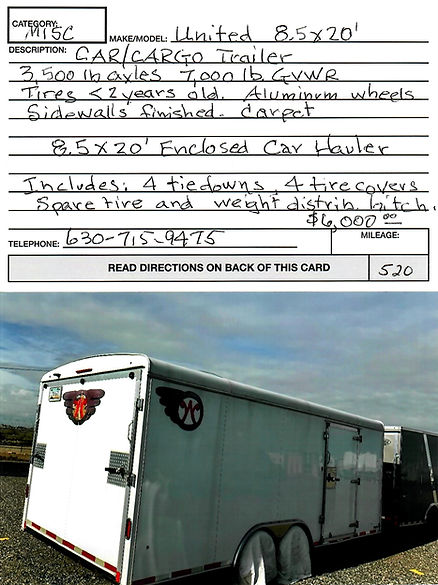 CATEGORY:
MISC
MAKE/MODEL: United 8.5x20'
DESCRIPTION: CAR/CARGO Trailer
3,500 lb axles 7,000 lb GVWR
Tires <2 years old. Aluminum wheels
Sidewalls finished. Carpet
8.5x20' Enclosed Car Hauler
Includes: 4 tiedowns, 4 tire covers
Spare tire and weight distrib. hitch.
$6,000 00
TELEPHONE: 630-715-9475
MILEAGE:
READ DIRECTIONS ON BACK OF THIS CARD
520